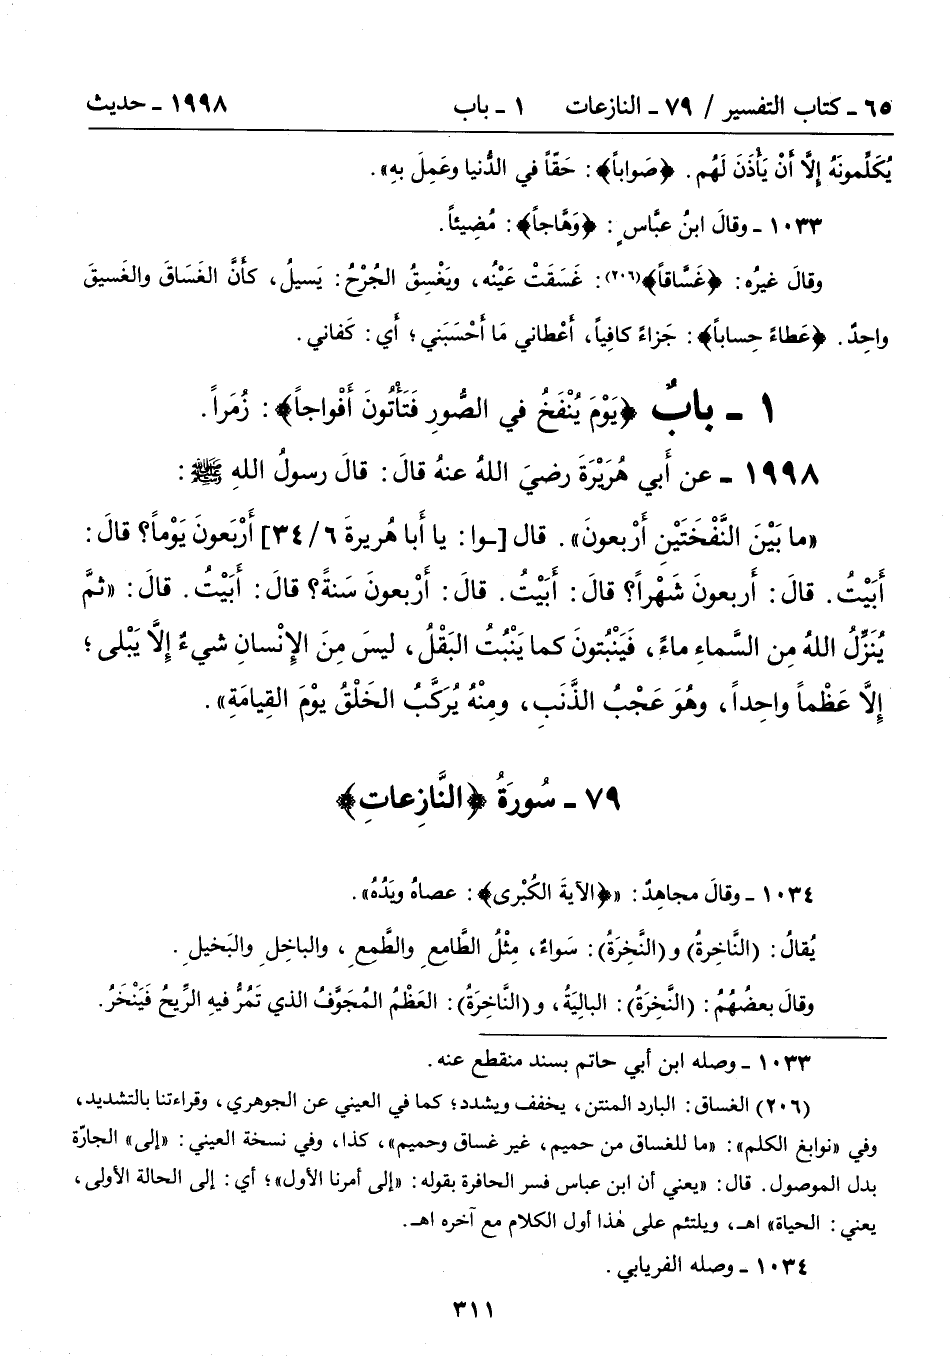 ٦٥ ـ كتاب التفسير / ٧٩ ـ النازعات ١ ـ باب ١٩٩٨ ـ حديث
يُكَلِّمونَهُ إلَّا أَنْ يَأْذَنَ لَهُم. ﴿صَواباً﴾: حَقّاً في الدُّنيا وعَمِلَ بهِ».
١٠٣٣ ـ وقالَ ابنُ عبَّاسٍ: ﴿وَهَّاجاً﴾: مُضِيئاً.
وقالَ غيرُه: ﴿غَسَّاقاً﴾(٢٠٦): غَسَقَتْ عَيْنُه، ويَغْسِقُ الجُرْحُ: يَسيلُ، كأَنَّ الغَسَاقَ والغَسيقَ
واحِدٌ. ﴿عَطاءً حِساباً﴾: جَزاءً كافِياً، أَعْطاني مَا أَحْسَبَني؛ أَي: كَفاني.
١ ـ بابٌ ﴿يَوْمَ يُنْفَخُ في الصُّورِ فَتَأْتُونَ أَفْواجاً﴾: زُمَراً.
١٩٩٨ ـ عن أَبي هُرَيْرَةَ رضيَ اللهُ عنهُ قالَ: قالَ رسولُ اللهِ ﷺ:
«ما بَيْنَ النَّفْخَتَيْنِ أَرْبعونَ». قال [ـوا: يا أَبا هُريرةَ ٦/ ٣٤] أَرْبَعونَ يَوْماً؟ قالَ:
أَبَيْتُ. قالَ: أَربعونَ شَهْراً؟ قالَ: أَبَيْتُ. قالَ: أَرْبعونَ سَنةً؟ قالَ: أَبَيْتُ. قالَ: «ثمَّ
يُنَزِّلُ اللهُ مِن السَّماءِ ماءً، فَيَنْبُتونَ كما يَنْبُتُ البَقْلُ، ليسَ مِنَ الإِنْسانِ شيءٌ إلَّا يَبْلى؛
إلَّا عَظْماً واحِداً، وهُوَ عَجْبُ الذَّنَبِ، ومِنْهُ يُرَكَّبُ الخَلْقُ يوْمَ القِيامَةِ».
٧٩ ـ سُورَةُ ﴿النَّازِعاتِ﴾
١٠٣٤ ـ وقالَ مجاهِدٌ: «﴿الآيَةَ الكُبْرى﴾: عصاهُ ويَدُهُ».
يُقالُ: (النَّاخِرةُ) و(النَّخِرَةُ): سَواءٌ، مِثْلُ الطَّامعِ والطَّمعِ، والباخِلِ والبَخيلِ.
وقالَ بعضُهُمْ: (النَّخِرَةُ): البالِيَةُ، و(النَّاخِرَةُ): العَظْمُ المُجَوَّفُ الذي تَمُرُّ فيهِ الرِّيحُ فَيَنْخَرُ.
١٠٣٣ ـ وصله ابن أبي حاتم بسند منقطع عنه.
(٢٠٦) الغساق: البارد المنتن، يخفف ويشدد؛ كما في العيني عن الجوهري، وقراءتنا بالتشديد،
وفي «نوابغ الكلم»: «ما للغساق من حميم، غير غساق وحميم»، كذا، وفي نسخة العيني: «إلى» الجارّة
بدل الموصول. قال: «يعني أن ابن عباس فسر الحافرة بقوله: «إلى أمرنا الأول»؛ أي: إلى الحالة الأولى،
يعني: الحياة» اهـ، ويلتئم على هٰذا أول الكلام مع آخره اهـ.
١٠٣٤ ـ وصله الفريابي.
٣١١